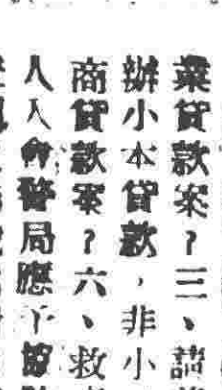 業貸款案?三、請
辦小本貸款,非小
商貸款案?六、救
人入會警局應予